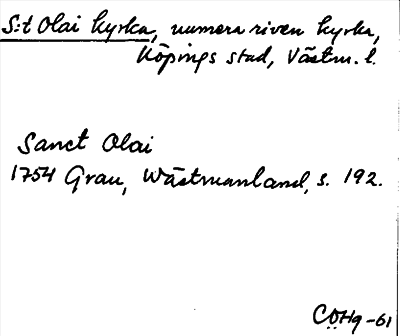 S:t Olai kyrka, numera riven kyrka,
Köpings stad, Västm. l.
Sanct Olai
1754 Grau, Wästmanland, s. 192.
CÖHg -61